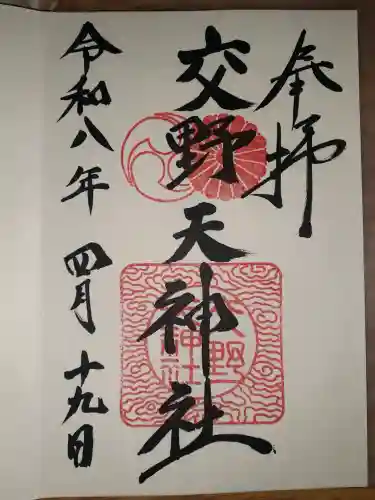 奉拝
交野天神社
令和八年 四月 十九日
交野
神社